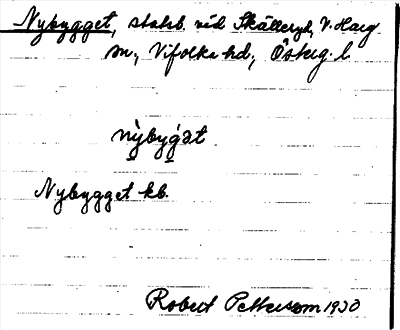 Nybygget, stalsb. vid Skälleryd, V. Harg
sn, Vifolka hd, Österg. l.
nybyg̀ət
Nybygget kb.
Robert Pettersson 1930